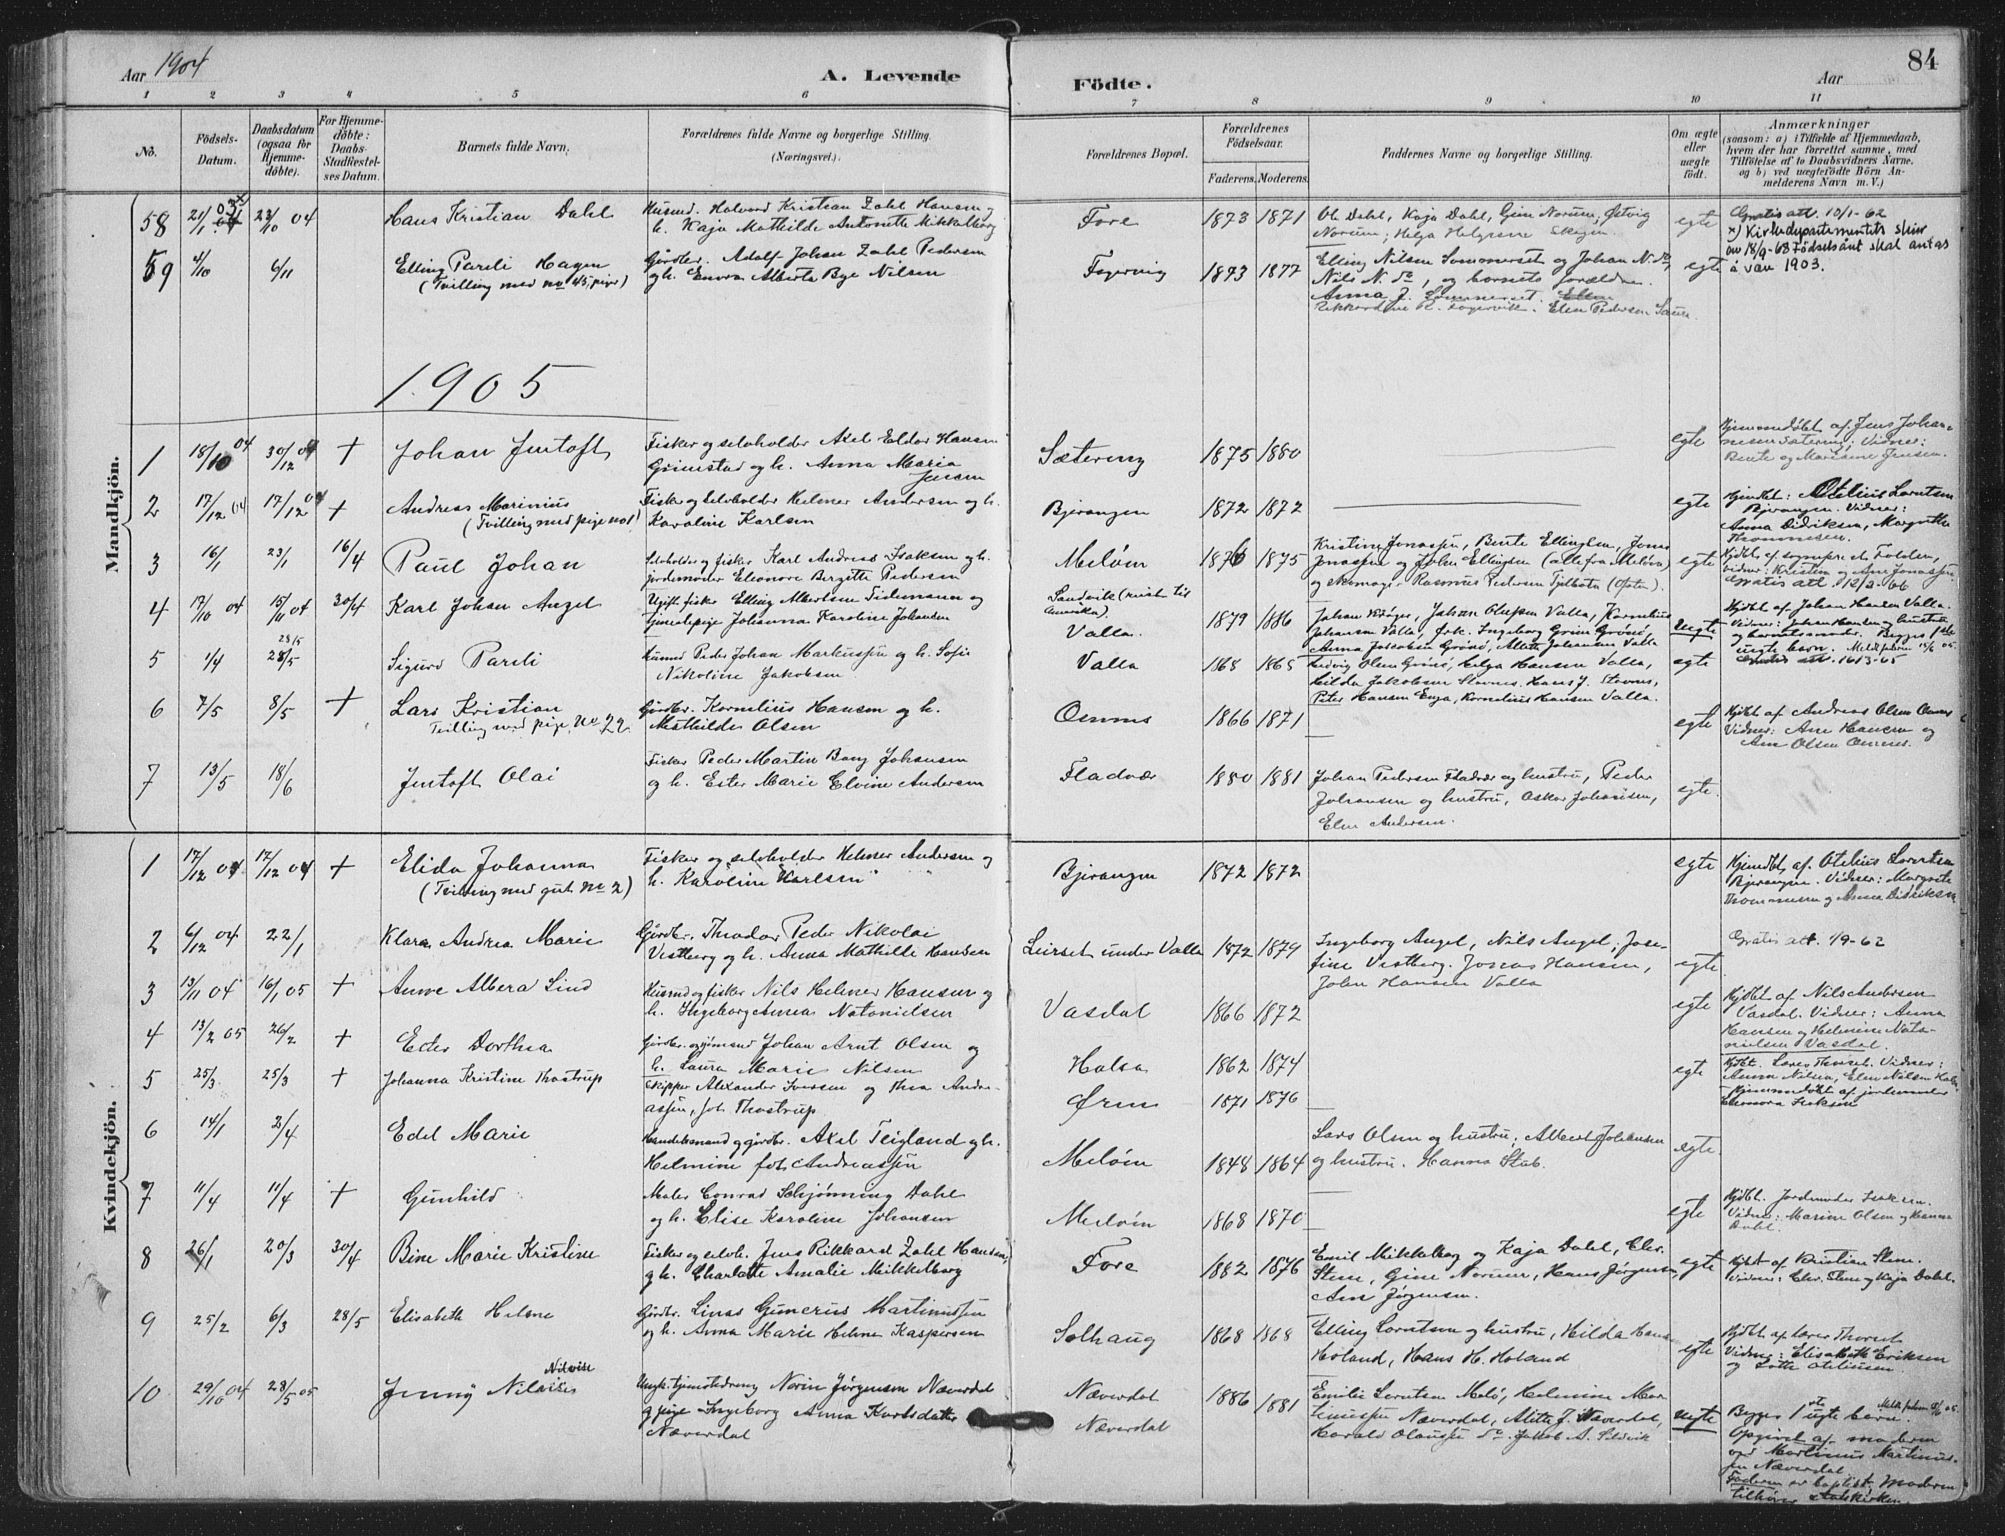 Aar 1904
A. Levende
Födte.
Aar
84
1 2 3 4 5 6 7 8 9 10 11
No.
Födsels-Datum.
Daabsdatum (ogsaa for Hjemme-döbte).
For Hjemme-döbte: Daabs-Stadfæstel-ses Datum.
Barnets fulde Navn.
Forældrenes fulde Navne og borgerlige Stilling.
(Næringsvei.)
Forældrenes Bopæl.
Forældrenes Födselsaar.
Faderens. Moderens.
Faddernes Navne og borgerlige Stilling.
Om ægte eller uægte födt.
Anmærkninger
(saasom: a) i Tilfælde af Hjemmedaab,
hvem der har forrettet samme, med
Tilföielse af to Daabsvidners Navne,
og b) ved uægtefödte Börn An-
melderens Navn m. V.)
58 21/1 03 x) 23/10 04 Hans Kristian Dahl
Husmd. Halvard Kristian Zahl Hansen og
h. Kaja Mathilde Antonette Mikkelborg
Fore 1873 1871
Ole Dahl, Kaja Dahl, Gine Norum,
egte
Gratis att. 10/1-62
x) Kirkedepartementets skriv
av 18/9-68 Födselsånt skal antas
å vær 1903.
59 4/10 6/11 Elling Parili Hagen
(Tvilling med no 45, piger)
Gårdbr. Adolf Johan Zahl Pedersen
og h. Enora Alberta Bye Nilsen
Fagervig 1873 1877
Elling Nilsen Sommerset og Johan N. do,
Nils N. do, og barnets forældre.
Anna J. Sommerset.
egte
1905
Mandkjön.
1 18/10 04 30/12 04 + Johan Jentoft
Fisker og selvholder Axel Eldor Hansen
Grimstad og h. Anna Maria
Jensen
Sætering 1875 1880
egte
Hjemmedøbt af Jens Johan-
Bente og Marisine Jensen.
2 17/12 04 17/12 04 + Andreas Marinius
(Tvilling med pige no 1)
Fisker og Selvholder Helmer Andersen og h.
Karoline Karlsen
Bjerangen 1872 1872
egte
Hjemdbt: Otelius Lorntsen
Bjerangen. Vidner:
Anna Didriksen, Margrethe
Thommesen.
3 16/1 23/1 16/4 Paul Johan
Selvholder og fisker Karl Andreas Isaksen og h.
jordemoder Eleonore Bergitte Pedersen
Meløen 1876 1875
Kristine Jonassen, Bente Ellingsen, Jonas
Jonassen og John Ellingsen (alle fra Meløen)
og skomager Rasmus Pedersen
egte
vidner: Kristine og Ane Jonassen
Gratis att. 12/2-66
4 17/10 04 15/11 04 30/4 Karl Johan Angel
Ugift fisker Elling Albertsen Tidemann og
Tjenestepige Johanna Karoline Johansen
Sandvik (reist til
Amerika)
Valla. 1879 1886
Johan Krøger, Johan Olufsen Valla, Kornelius
Johansen Valla, Frk. Ingeborg Grøn Grønø,
Anna Jacobsen Grønø, Alette Johansen Valla
uegte
Hjdbt af Johan Hansen Valla.
Vidner: Johan Hansen og hustru
og barnets moder. Begges 1ste
uegte barn.
5 1/4 28/5 28/5 Sigurd Parili
Husmd Peder Johan Markussen og h. Sofie
Nikoline Jakobsen
Valla 1868 1865
Ludvig Olsen Grønø, Helga Hansen Valla,
Hilda Jakobsen Stavnes. Hans J. Stavnes,
Peter Hansen Enga, Kornelius Hansen Valla.
egte
Gratis att. 16/3-65
6 7/5 8/5 + Lars Kristian
Tvilling med pige No 22
Gårdbr. Kornelius Hansen og h.
Mathilde Olsen
Oernes 1866 1871
egte
Hjdbt af Andreas Olsen Oernes
Vidner: Ane Hansen og
Ane Olsen Oernes.
7 13/5 18/6 Jentoft Olai
Fisker Peder Martin Bang Johansen
og h. Ester Marie Elvine Andersen
Fladvær 1880 1881
Johan Pedersen Fladvær og hustru, Peder
Johansen og hustru, Oskar Johansen,
Elen Andersen.
egte.
Kvindekjön.
1 17/12 04 17/12 04 + Elida Johanna
(Tvilling med gut No 2)
Fisker og selvholder Helmer Andersen og
h. Karoline Karlsen
Bjerangen 1872 1872
egte
Hjemdbt. af. Otelius Lorntsen
Bjerangen. Vidner: Margrete
Thommesen og Anna Didriksen
2 6/12 04 22/1 Klara Andrea Marie
Gårdbr. Theodor Peder Nikolai
Vestberg og h. Anna Mathilde Hansen
Leirset under Valla 1872 1879
Ingeborg Angel, Nils Angel, Jose-
fine Vestberg. Jonas Hansen,
John Hansen Valla
egte.
Gratis att. 1/9-62
3 13/11 04 16/1 05 + Anne Albera Lind
Husmd og fisker Nils Helmer Hansen og
h. Ingeborg Annea Natanielsen
Vasdal 1866 1872
egte
Hjdbt af Nils Andersen
Vasdal. Vidner: Anna
Hansen og Helmine Nata-
nielsen Vasdal.
4 13/2 05 26/2 + Ester Dorthea
Johan Arnt Olsen og
h. Laura Marie Nilsen
Halsa 1862 1874
egte
Anna Nilsen, Elen Nilsen Halsa
5 25/3 25/3 + Johanna Kristine Thostrup
Skipper Alexander Iversen og Thea Andre-
assen, f. Thostrup
Ørnes 1871 1876
Hjemmedøbt af jordemoder
Eleonora Isaksen
6 14/1 2/4 Edel Marie
Handelsmand og gårdbr. Axel Teigland og h.
Helmine født Andreassen
Meløen 1848 1864
Lars Olsen og hustru, Albert Johansen
og hustru. Hanna Stub.
egte.
7 11/4 11/4 + Gunhild
Maler Conrad Schjønning Dahl
og h. Elise Karoline Johansen
Meløen 1868 1870
egte
Hjdbt. Jordemoder Isaksen.
Vidner: Marine Olsen og Hanna
Dahl.
8 26/1 20/3 30/4 Bine Marie Kristine
Fisker og selvh. Jens Rikkard Zahl Hansen,
og h. Charlotte Amalie Mikkelborg
Fore 1882 1876
Emil Mikkelborg og Kaja Dahl, Chr.
Steen, Gine Norum, Hans Jørgensen,
Ane Jørgensen.
egte
Hjdbt af Kristian Steen.
Vidner: Chr. Steen og Kaja Dahl.
9 25/2 6/3 28/5 Elisabeth Helene
Gårdbr. Linas Gunerius Martinussen
og h. Anna Marie Helene Kaspersen
Solhaug 1868 1868
Elling Lorntsen og hustru, Hilda Hansen
Holand, Hans H. Holand
egte
Hjdbt af lærer Thorset
Vidner: Elisabeth Eriksen
og Lotte Oteliussen
10 29/10 04 28/5 05 Jenny Nilvise
Ungk. tjenestedreng Norin Jørgensen Næverdal
og pige Ingeborg Anna Kurtsdatter
Næverdal
Næverdal 1886 1881
Næverdal
Emilie Lorntsen Melø, Helmine Mar-
tinussen Næverdal, Alette J. Næverdal,
Harald Olaussen do. Jakob A. Selsvik
uegte
Begges 1ste uegte barn.
Opgivet af moderen
ved Martinus Martinus-
sen Næverdal
Faderen er baptist, Moderen
tilhører statskirken.